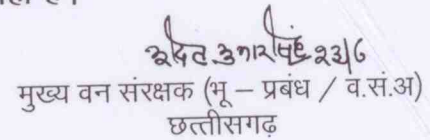 मुख्य वन संरक्षक (भू – प्रबंध / व.सं.अ)
छत्तीसगढ़